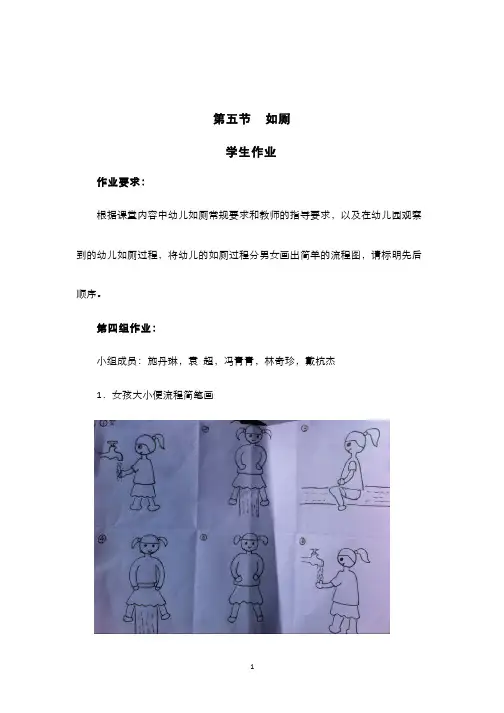 第五节 如厕
学生作业
作业要求：
根据课堂内容中幼儿如厕常规要求和教师的指导要求，以及在幼儿园观察
到的幼儿如厕过程，将幼儿的如厕过程分男女画出简单的流程图，请标明先后
顺序。
第四组作业：
小组成员：施丹琳，袁 超，冯青青，林奇珍，戴杭杰
1．女孩大小便流程简笔画
① ② ③
④ ⑤
1